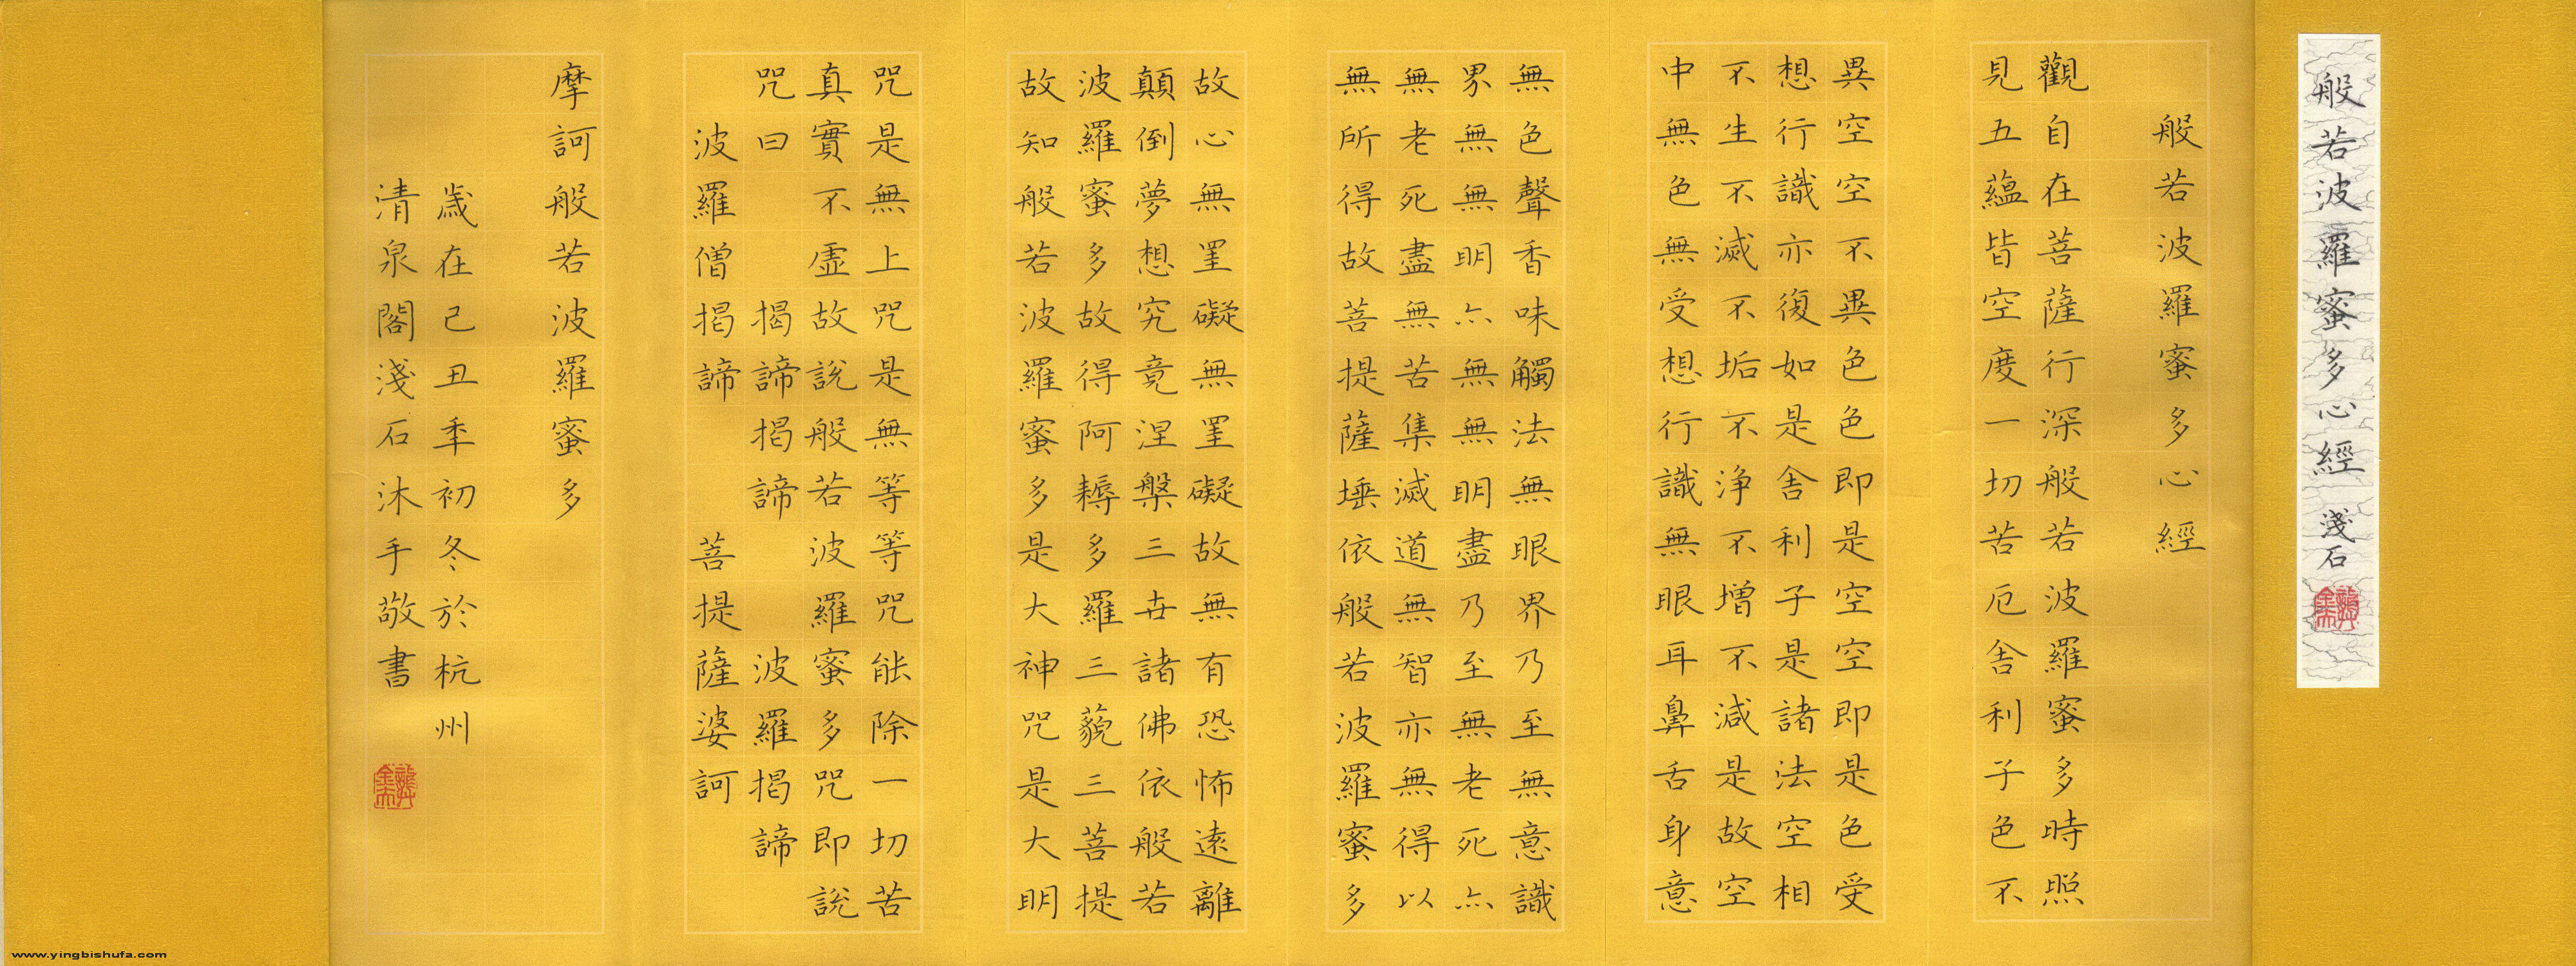 般若波羅蜜多心經 淺石
般若波羅蜜多心經
觀自在菩薩行深般若波羅蜜多時照
見五蘊皆空度一切苦厄舍利子色不
異空空不異色色即是空空即是色受
想行識亦復如是舍利子是諸法空相
不生不滅不垢不淨不增不減是故空
中無色無受想行識無眼耳鼻舌身意
無色聲香味觸法無眼界乃至無意識
界無無明亦無無明盡乃至無老死亦
無老死盡無苦集滅道無智亦無得以
無所得故菩提薩埵依般若波羅蜜多
故心無罣礙無罣礙故無有恐怖遠離
顛倒夢想究竟涅槃三世諸佛依般若
波羅蜜多故得阿耨多羅三藐三菩提
故知般若波羅蜜多是大神咒是大明
咒是無上咒是無等等咒能除一切苦
真實不虛故說般若波羅蜜多咒即說
咒曰 揭諦揭諦 波羅揭諦
波羅僧揭諦 菩提薩婆訶
摩訶般若波羅蜜多
歲在己丑年初冬於杭州
清泉閣淺石沐手敬書
www.yingbishufa.com